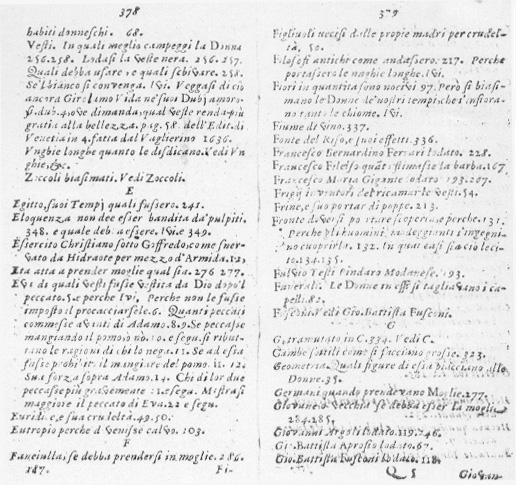 378
habiti donneschi. 68.
Vesti. In quali meglio campeggi la Donna
256.258. Lodasi la veste nera. 256. 257.
Quali debba usare, e quali schivare. 258.
Se'l bianco si convenga. Ivi. Veggasi di ciò
ancora Girolamo Vida ne' suoi Dubj amoro-
si. dub. 4. ove dimanda, qual veste renda più
gratia alla bellezza. pag. 58. dell'Edit. di
Venetia in 4. fatta dal Vaglierino 1636.
Vnghie longhe quanto le disdicano. Vedi Vn-
ghie, &c.
Ziccoli biasimati. Vedi Zoccoli.
E
Egitto, suoi Tempj quali fussero. 241.
Eloquenza non dee esser bandita da' pulpiti.
348. e quale debba essere, Ivi. e 349.
Esiercito Christiano sotto Goffredo, come sner-
vato da Hidraote per mezzo d'Armida. 12.
Età atta a prender moglie qual sia. 276 277.
Eva di quali vesti fusse vestita da Dio dopo il
peccato. 5. e perche Ivi, Perche non le fusse
imposto il procacciarsele. 6. Quanti peccati
commesse avanti di Adamo. 8. 9. Se peccasse
mangiando il pomo. 10. e segu. si ribut-
tano le ragioni di chi lo nega. 11. Se ad essa
fusse prohibito il mangiare del pomo. 11. 12.
Sua forza sopra Adamo. 14. Chi di lor due
peccasse più gravemente e segu. Mostrasi
maggiore il peccato di Eva. 22 e segu.
Euridice, e sua crudeltà. 49. 50.
Eutropio perche divenisse calvo. 103.
F
Fanciulla, se debba prendersi in moglie. 286.
287. Fi-
379
Figliuoli uccisi dalle propie madri per crudel-
tà. 50.
Filosofi antichi come andassero. 217. Perche
portassero le unghie longhe. Ivi.
Fiori in quantità sono nocivi 97. Però si biasi-
mano le Donne de' nostri tempi, che infiorano
tanto le chiome. Ivi.
Fiume di Vino. 337.
Fonte del Riso, e suoi effetti. 336.
Francesco Bernardino Ferrari lodato. 228.
Francesco Filelfo quanto stimasse la barba. 167
Francesco Maria Gigante lodato. 193. 267.
Frigj inventori del ricamar le vesti. 54.
Frine, e suo portar di poppe. 213.
Fronte doversi portare scoperta, e perche. 131.
Perche più huomini, ingegnino
cuoprirla. 132. In quai casi sia ciò leci-
to. 134. 135.
Fulvio Testi Pindaro Modanese. 193.
Funerali. Le Donne in essi si tagliavano i ca-
pelli. 82.
Fusconi. Vedi Gio. Battista Fusconi.
G
G, tramutato in C. 334. Vedi C.
Gambe sottili come si facciano grosse. 323.
Geometra. Quali figure di essa piacciano alle
Donne. 35.
Germani quando prendevano Moglie. 277.
Giovane, o Vecchia se debba esser la moglie
284. 285.
Giovanni Argoli lodato. 119. 246.
Gio. Battista Aprosio lodato. 67.
Gio. Battista Fusconi lodato. 118.
Giovan-